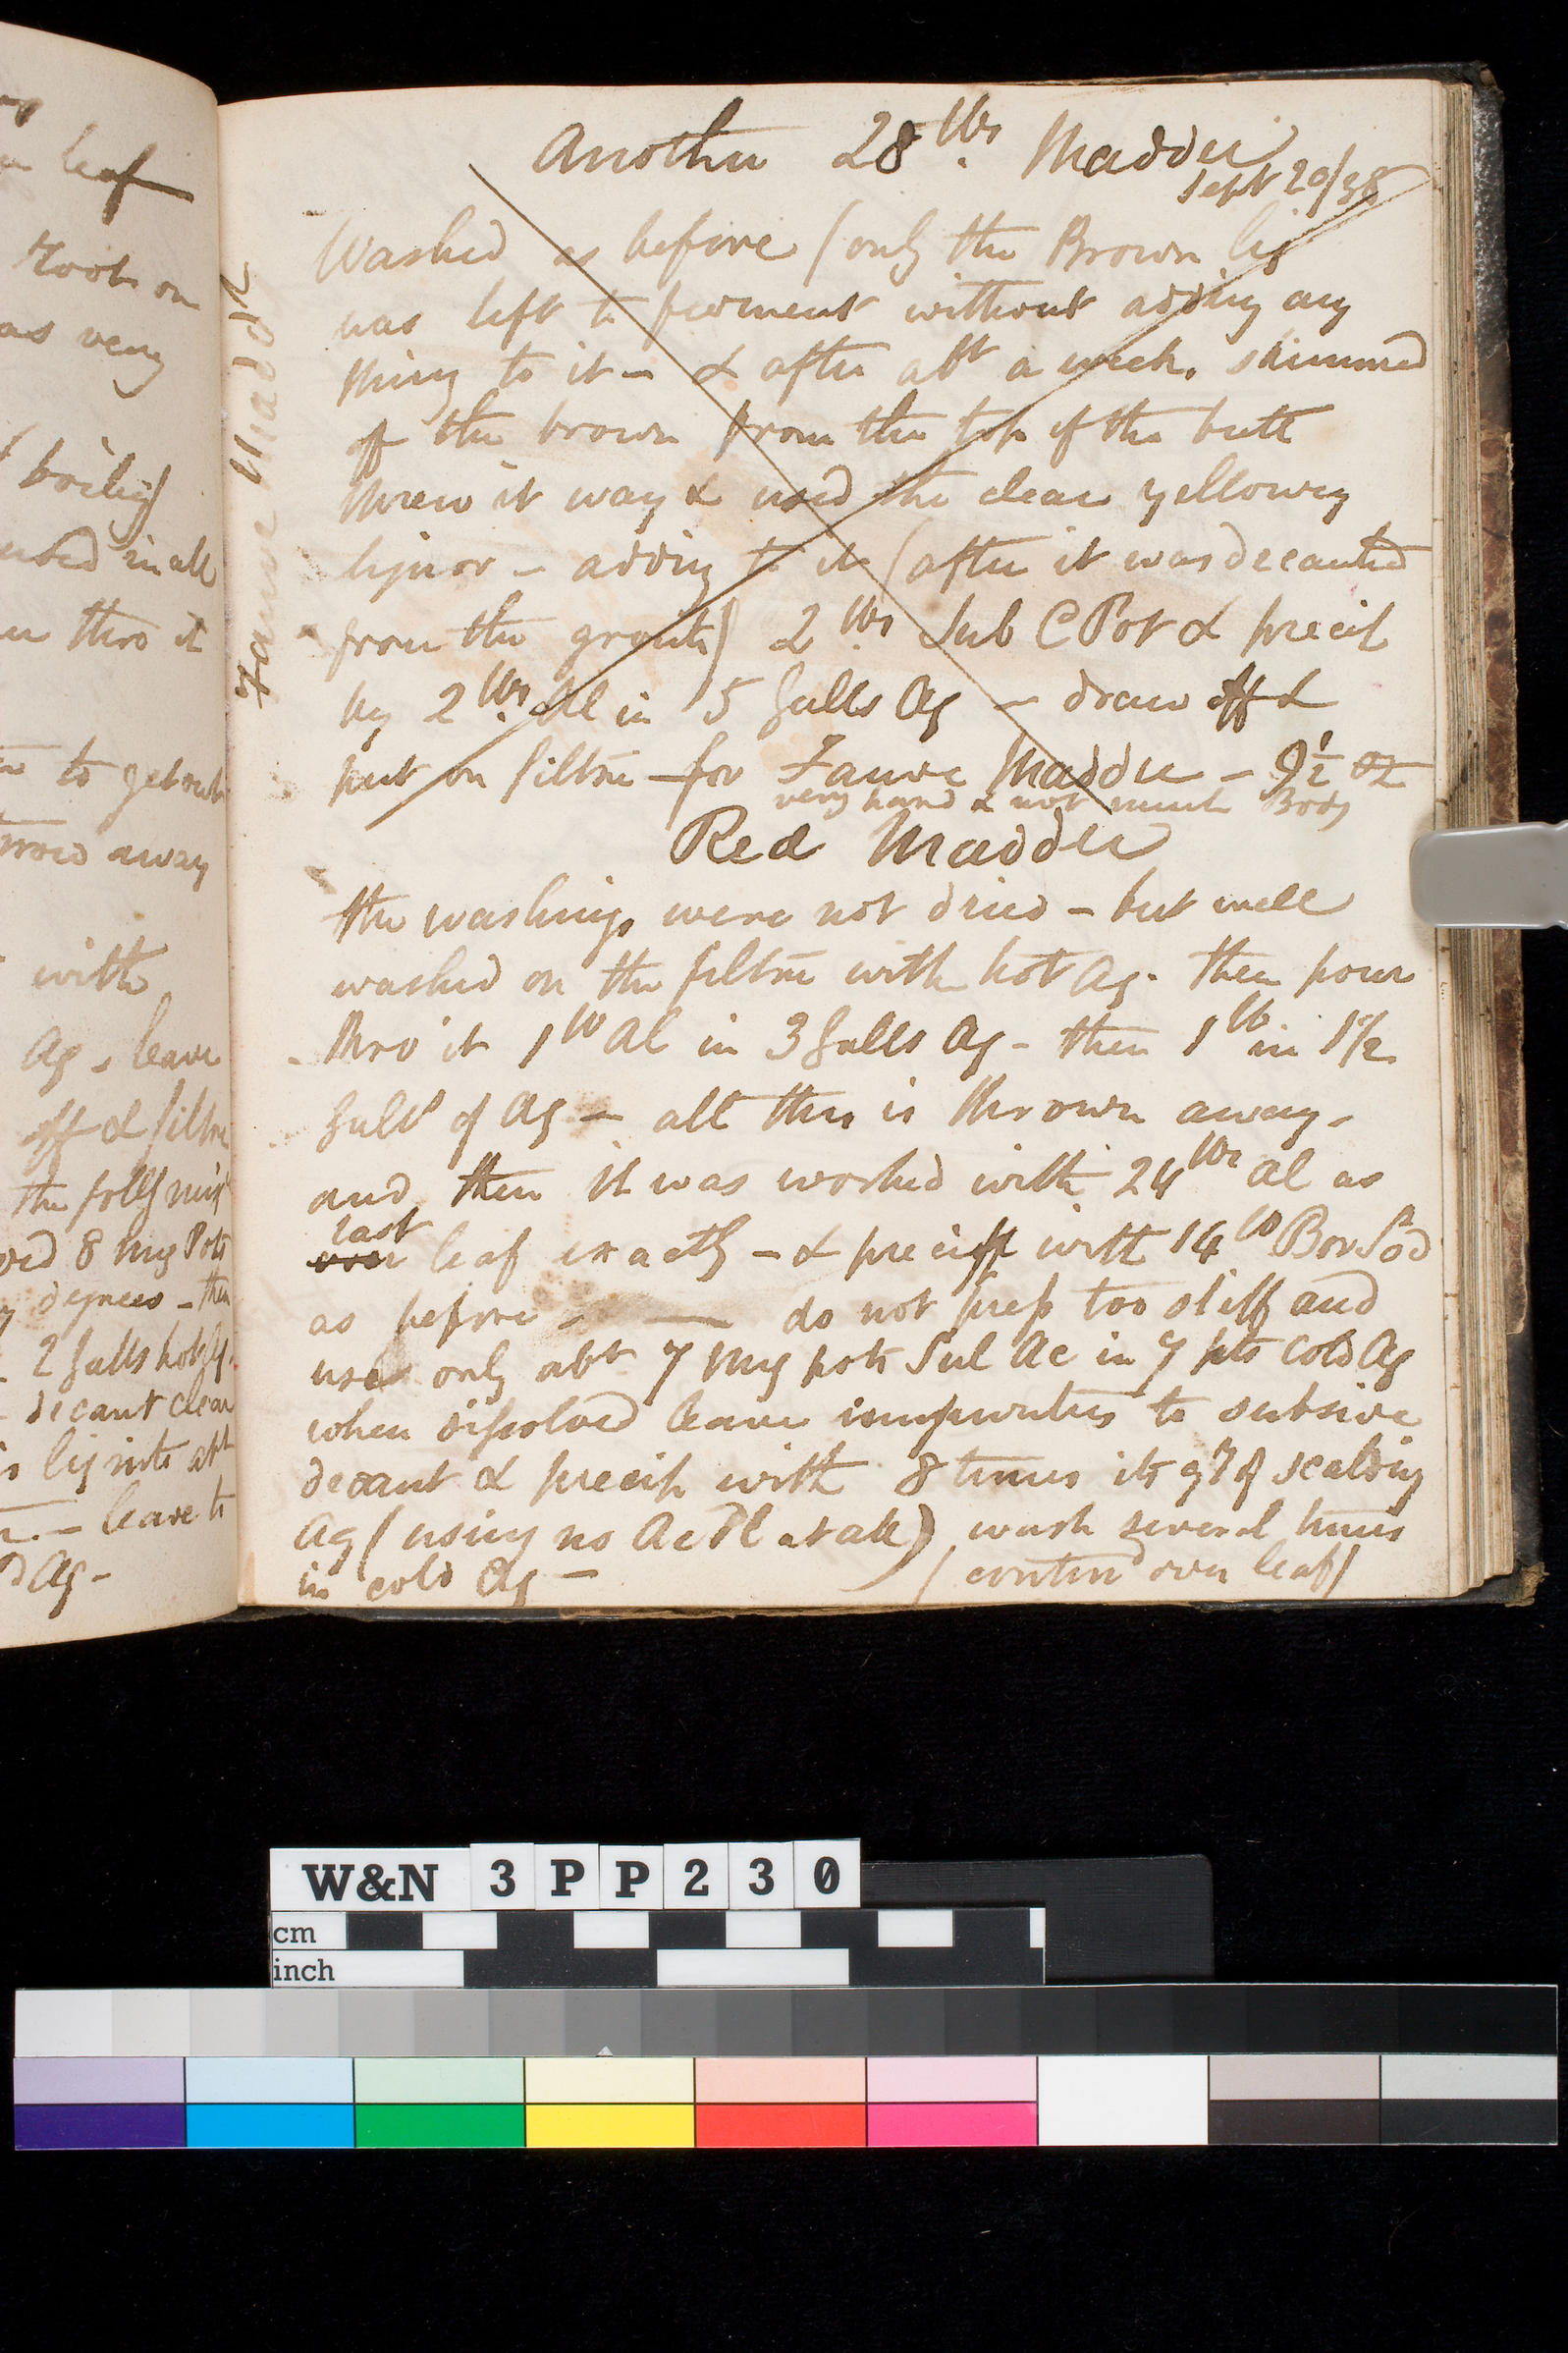 leaf
root on
as very
boiling
used in all
thro it
to get out
throw away
with
Aq - leave
off & filtre
the follg mix
8 mg Pots
degrees - then
2 galls hot Aq
decant clear
liq into abt
leave to
Aq -
Fauve Madder
Another 28 lbs Madder
Sept 20/38
Washed as before (only the Brown liq
was left to ferment without adding any
thing to it - & after abt a week. skimmed
off the brown from the top of the butt
threw it way & used the clear yellowey
liquor - adding to it (after it was decanted
from the grouts) 2 lbs. Sub C Pot & precip
by 2 lbs. Al in 5 galls Aq - draw off &
put on filtre - for Fauve Madder - 9½ oz
very hard & not much Body
Red Madder
the washings were not dried - but well
washed on the filtre with hot Aq. then pour
thro it 1 lb Al in 3 galls Aq - then 1 lb in 1½
galls of Aq - all this is thrown away -
and then it was worked with 24 lbs Al as
last
over leaf exactly - & precip with 14 lb Bor Sod
as before - do not press too stiff and
use only abt 7 mg pots Sul Ac in 7 pts cold Aq
when dissolved leave impurities to subside
decant & precip with 8 times its qty of scalding
Aq (using no Ac Pl at all) wash several times
in cold Aq - (contind over leaf)
W&N 3PP230
cm
inch